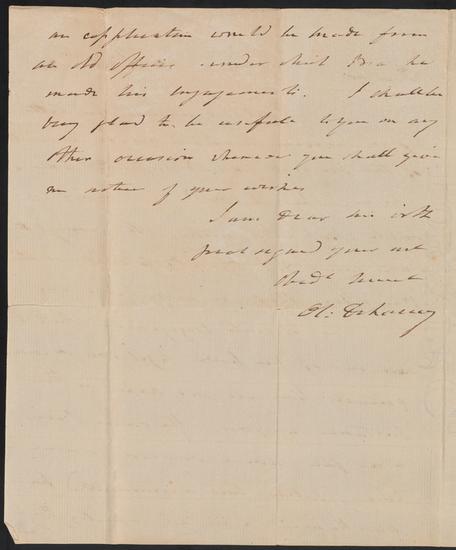 an application would be made from
an old officer under which he
made his engagements. I shall be
very glad to be useful to you on any
other occasion whenever you shall give
me notice of your wishes
I am dear sir with
great regard your mt
Obedt servt